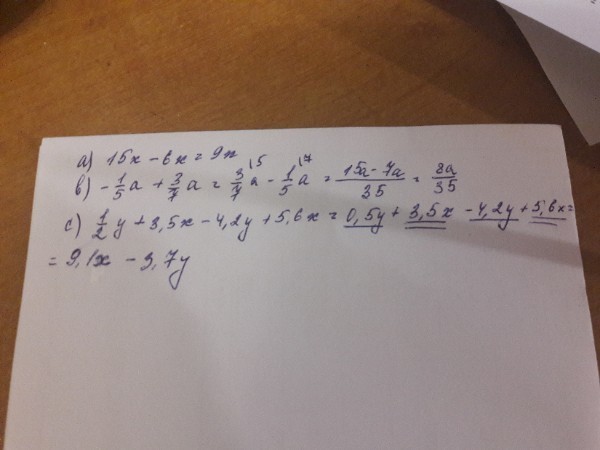 a) 15x - 6x = 9x
b) -1/5a + 3/7a = 3/7a\5 - 1/5a\7 = 15a - 7a/35 = 8a/35
c) 1/2y + 3,5x - 4,2y + 5,6x = 0,5y + 3,5x - 4,2y + 5,6x =
= 9,1x - 3,7y